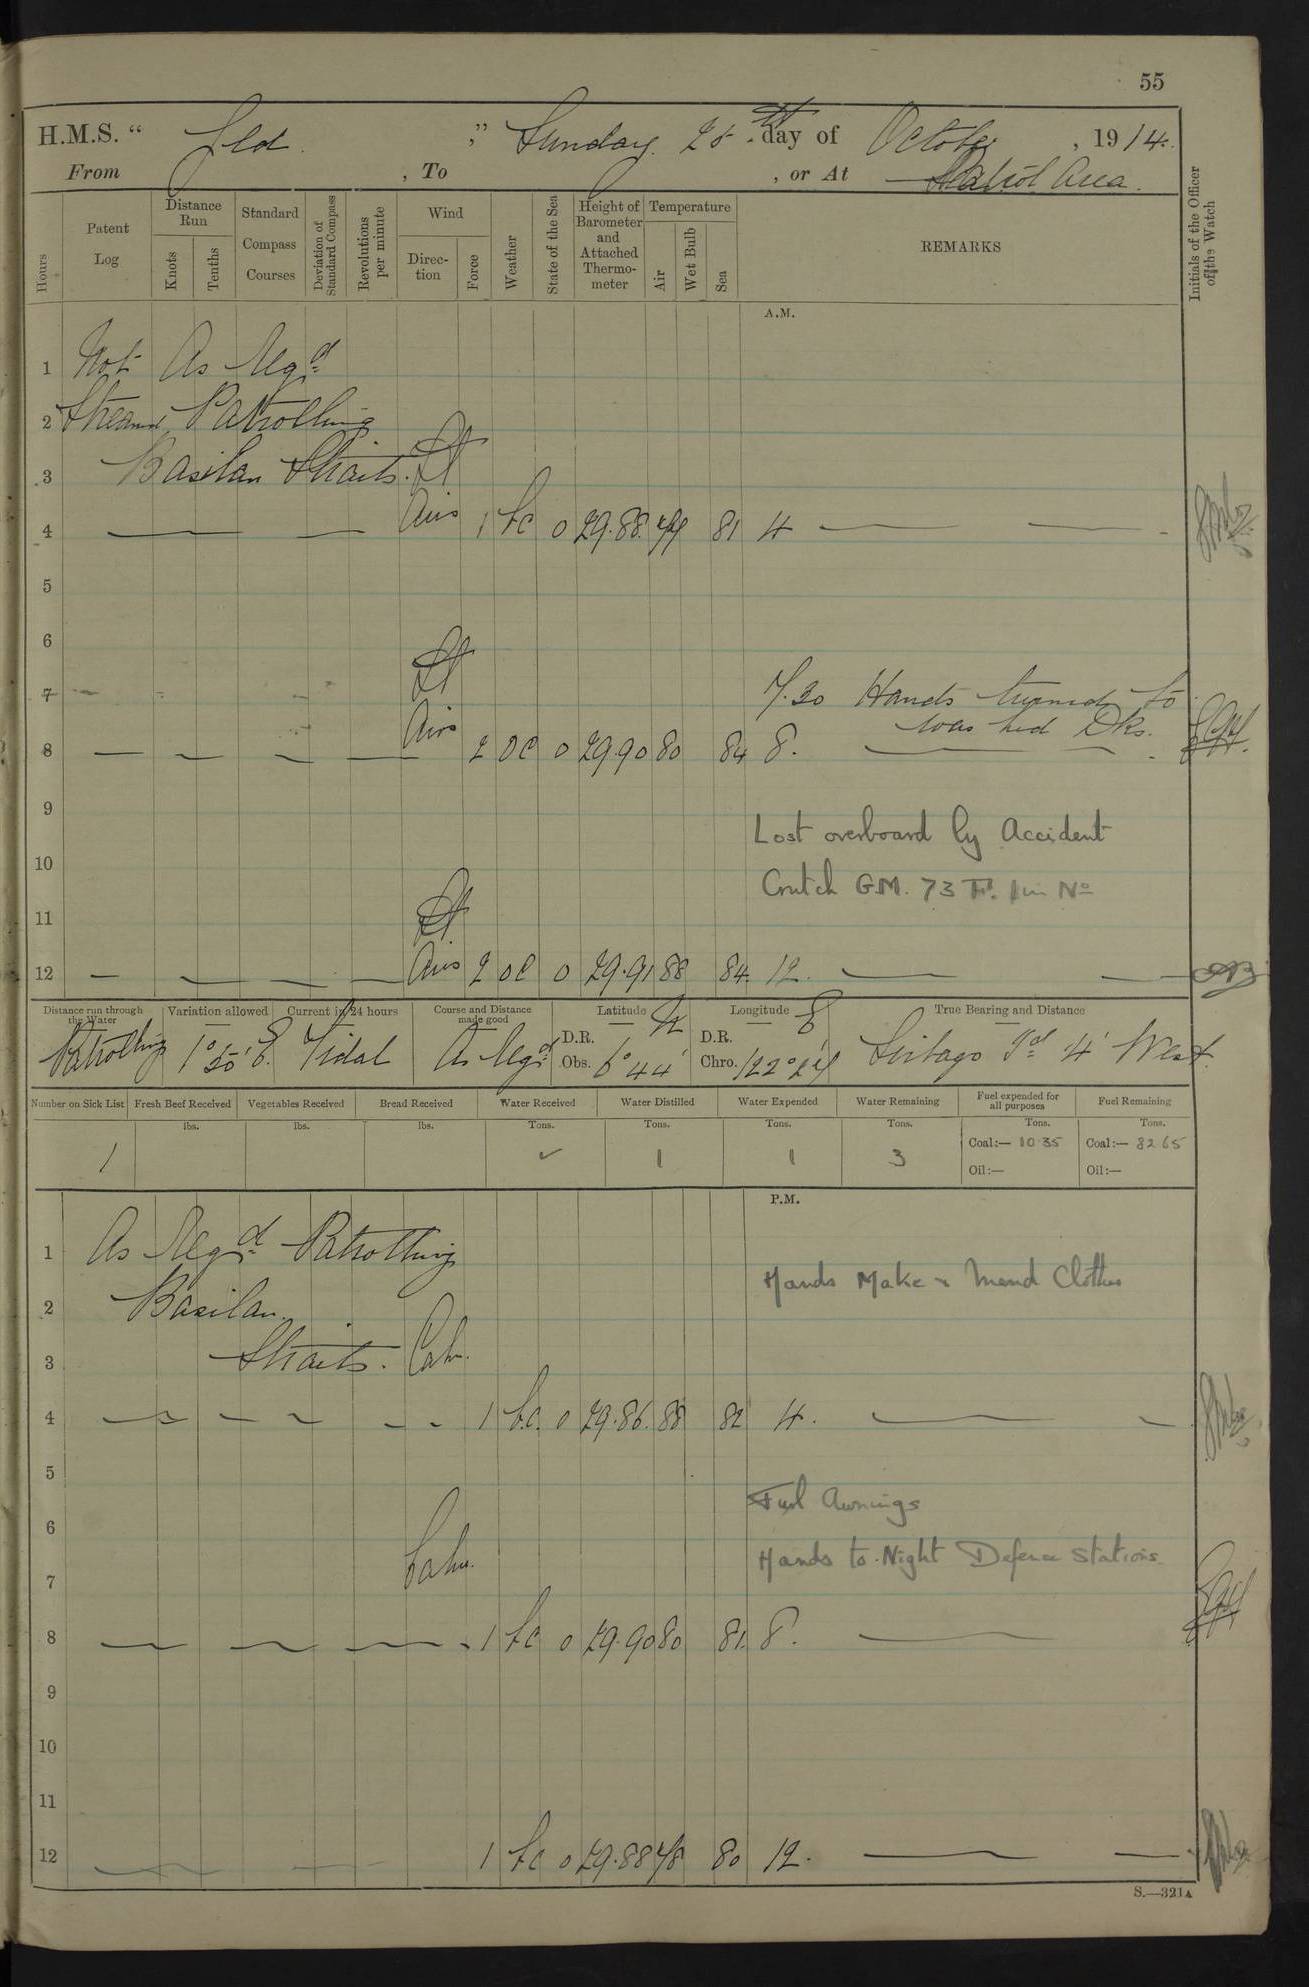 55
H.M.S. " Yld ," Sunday 25th day of October, 1914.
From , To , or At Patrol Area.
Hours
Patent Log
Distance Run
Knots
Tenths
Standard Compass Courses
Deviation of Standard Compass
Revolutions per minute
Wind
Direction
Force
Weather
State of the Sea
Height of Barometer and Attached Thermometer
Temperature
Air
Wet Bulb
Sea
REMARKS
Initials of the Officer of the Watch
A.M.
1 Not As Reqd
2 Steamd Patrolling
3 Basilan Straits. Lt
4 Airs 1 bc 0 29.88 79 81 4
5
6
Lt
7 7.30 Hands turned to
Airs washed Dks.
8 2 oc 0 29.90 80 84 8.
9 Lost overboard by Accident
10 Crutch G.M. 73 Ft. 1 in No
11 Lt
12 Airs 2 oc 0 29.91 88 84. 12.
Distance run through the Water
Patrolling
Variation allowed
1° 50' E.
Current in 24 hours
Tidal
Course and Distance made good
As Reqd
Latitude N
D.R.
Obs. 6° 44'
Longitude E
D.R.
Chro. 122° 24'
True Bearing and Distance
Sibago Id 4' West.
Number on Sick List
1
Fresh Beef Received
lbs.
Vegetables Received
lbs.
Bread Received
lbs.
Water Received
Tons.
✓
Water Distilled
Tons.
1
Water Expended
Tons.
1
Water Remaining
Tons.
3
Fuel expended for all purposes
Tons.
Coal:— 10.35
Oil:—
Fuel Remaining
Tons.
Coal:— 82 65
Oil:—
P.M.
1 As Reqd Patrolling
Hands Make & Mend Clothes
2 Basilan
3 Straits. Calm.
4 1 b.c. 0 29.86. 88 82 4.
5
Furl Awnings
6
Calm. Hands to Night Defence Stations
7
8 1 bc 0 29.90 80 81. 8.
9
10
11
12 1 bc 0 29.88 78 80 12.
S.—321A